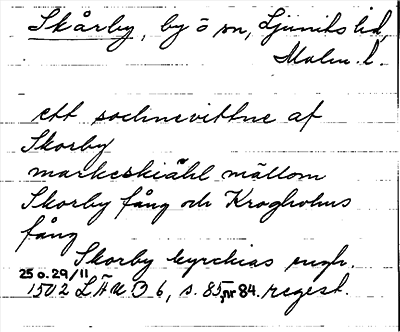 Skårby, by o sn, Ljunits hd,
Malm. l.
ett sochnevittne af
Skorby
markeskiähl mällom
Skorby fång och Krogholms
fång
Skorby kyrckias engh.
25 o. 29/11
1502 LÄU B 6, s. 85, nr 84. regest.